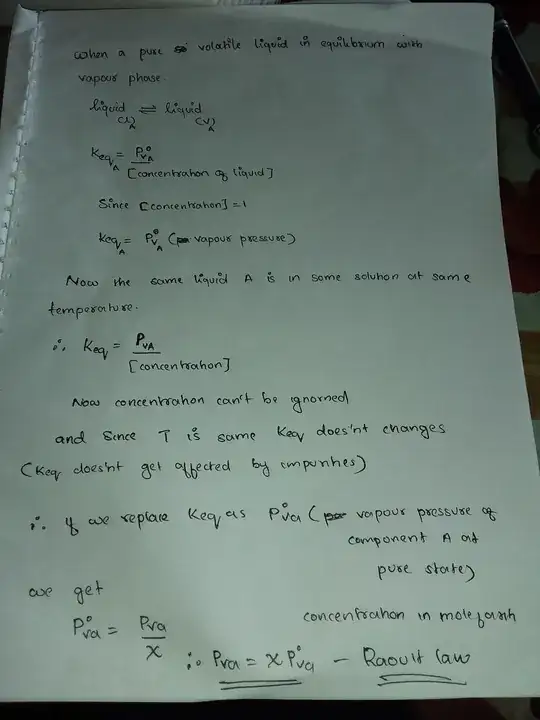 when a pure volatile liquid in equilibrium with
vapour phase.
liquid (l)A ⇌ liquid (v)A
KeqA = P°vA / [concentration of liquid]
Since [concentration] = 1
KeqA = P°vA ( vapour pressure)
Now the same liquid A is in some solution at same
temperature.
∴ Keq = PvA / [concentration]
Now concentration can't be ignorned
and since T is same Keq does'nt changes
(Keq does'nt get affected by impurities)
∴ if we replace Keq as P°va ( vapour pressure of
component A at
pure state)
we get
concentration in molefarsh
P°va = Pva / x
∴ Pva = x P°va - Raoult law